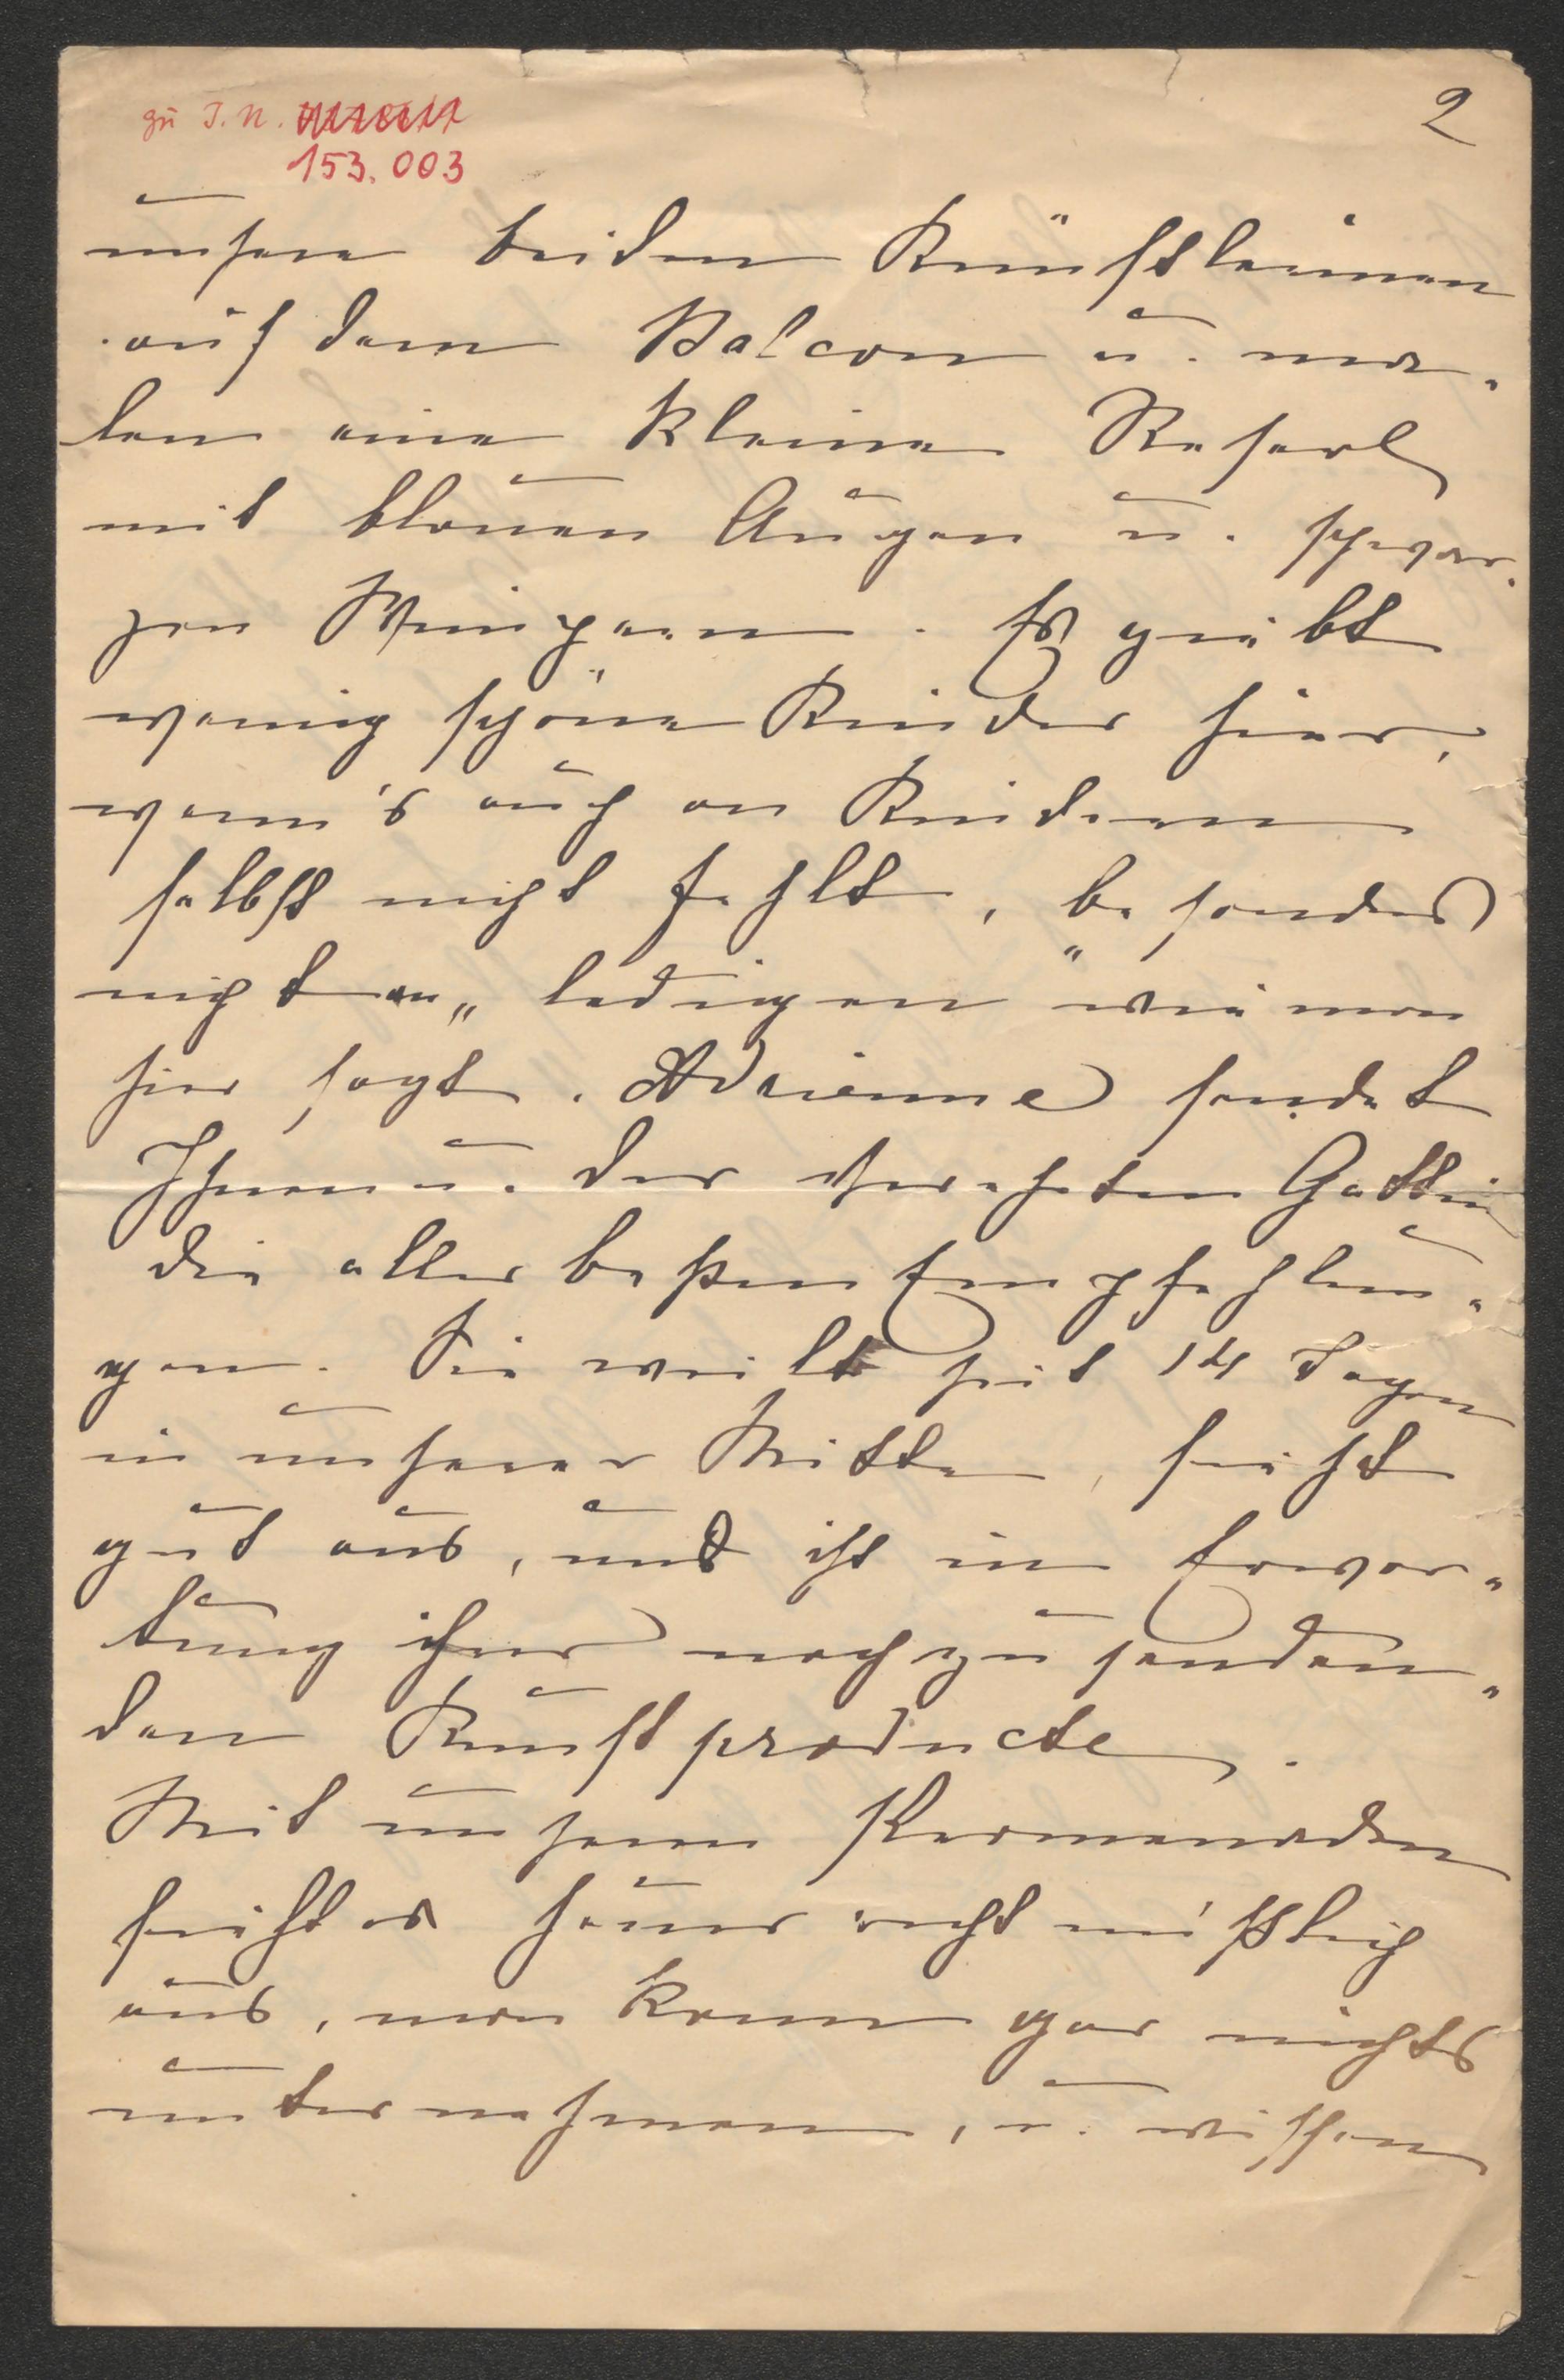 zu I.N.
153.003
2
unsere beiden Künstlerinen
auf dem Balcon u. ma„
len eine kleine Reserl
mit blauen Augen u. schwar„
zen Wimpern. Es giebt
wenig schöne Kinder hier,
wenn's auch an Kindern
selbst nicht fehlt, besonders
nicht an „ledigen“ wie man
hier sagt. Adrienne sendet
Ihnen u. der verehrten Gattin
die allerbesten Empfehlun„
gen. Sie weilt seit 14 Tagen
in unserer Mitte, sieht
gut aus, und ist in Erwar„
tung ihrer nachzusenden„
den Kunstproducte.
Mit unseren Promenaden
sieht es heuer recht mißlich
aus, man kann gar nichts
unternehmen, u. wissen